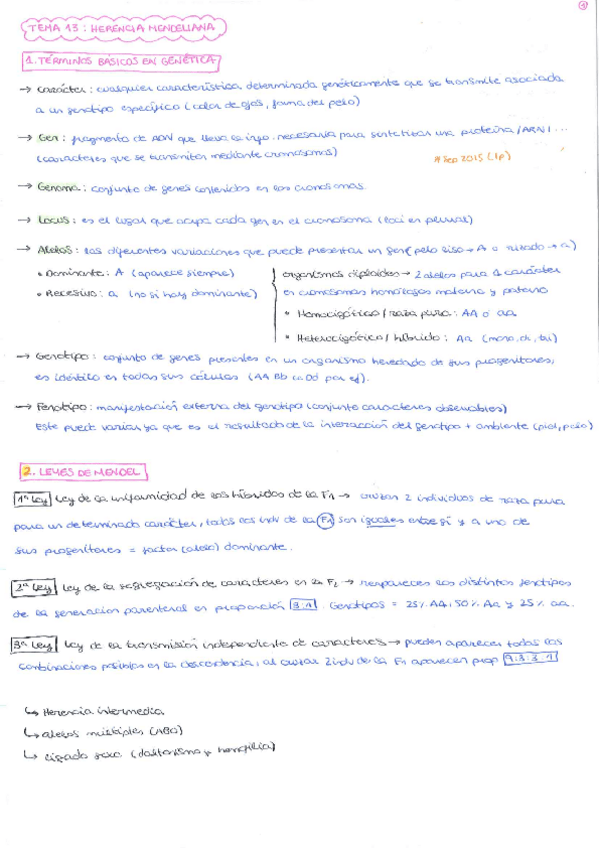 1
TEMA 13: HERENCIA MENDELIANA
1. TÉRMINOS BÁSICOS EN GENÉTICA
→ Carácter: cualquier característica determinada genéticamente que se transmite asociada
a un genotipo específico (color de ojos, forma del pelo)
→ Gen: fragmento de ADN que lleva la info. necesaria para sintetizar una proteína/ARN/...
(caracteres que se transmiten mediante cromosomas)
Sep 2015 (1p)
→ Genoma: conjunto de genes contenidos en los cromosomas.
→ Locus: es el lugar que ocupa cada gen en el cromosoma (loci en plural)
→ Alelos: las diferentes variaciones que puede presentar un gen (pelo liso → A o rizado → a)
• Dominante: A (aparece siempre)
• Recesivo: a (no si hay dominante)
organismos diploides → 2 alelos para 1 carácter
en cromosomas homólogos materno y paterno
• Homocigótico/raza pura: AA o aa
• Heterocigótico/híbrido: Aa (mono, di, tri)
→ Genotipo: conjunto de genes presentes en un organismo heredando de sus progenitores,
es idéntico en todas sus células (AA Bb cc Dd por ej).
→ Fenotipo: manifestación externa del genotipo (conjunto caracteres observables)
Este puede variar ya que es el resultado de la interacción del genotipo + ambiente (piel, peso)
2. LEYES DE MENDEL
1ª Ley Ley de la uniformidad de los híbridos de la F1 → cruzar 2 individuos de raza pura
para un determinado carácter, todos los indv de la F1 son iguales entre sí y a uno de
sus progenitores = factor (alelo) dominante.
2ª Ley Ley de la segregación de caracteres en la F2 → reaparecen los distintos fenotipos
de la generación parenteral en proporción 3:1. Genotipos = 25% AA, 50% Aa y 25% aa.
3ª Ley Ley de la transmisión independiente de caracteres → pueden aparecer todas las
combinaciones posibles en la descendencia, al cruzar 2 indv de la F1 aparecen prop 9:3:3:1
↳ Herencia intermedia
↳ alelos múltiples (ABO)
↳ ligado sexo (daltonismo y hemofilia)